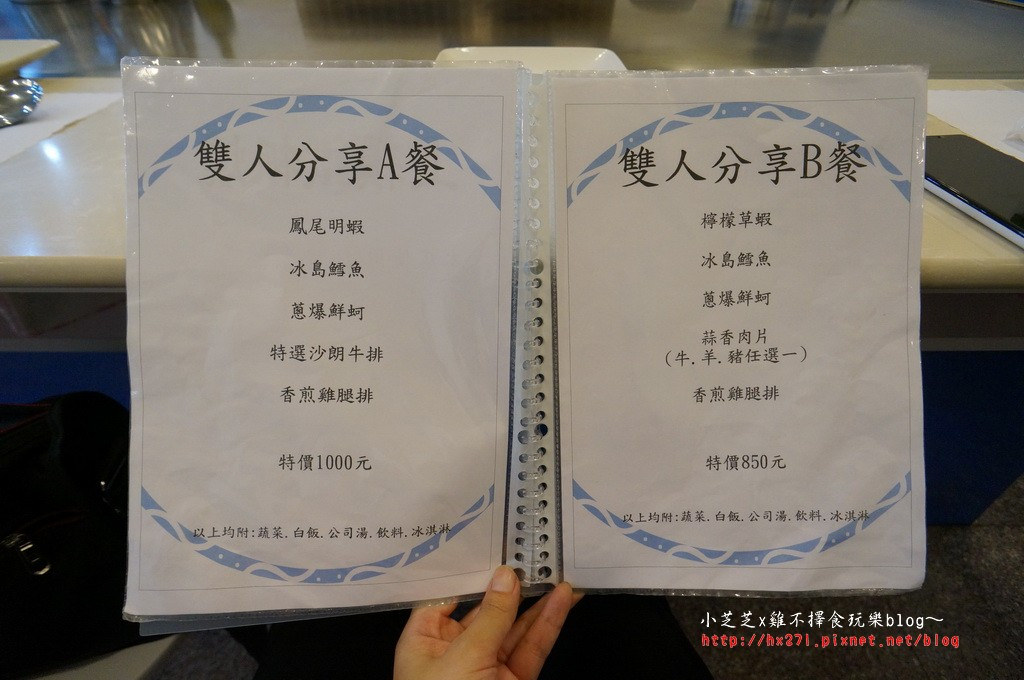 雙人分享A餐
鳳尾明蝦
冰島鱈魚
蔥爆鮮蚵
特選沙朗牛排
香煎雞腿排
特價1000元
以上均附:蔬菜.白飯.公司湯.飲料.冰淇淋
雙人分享B餐
檸檬草蝦
冰島鱈魚
蔥爆鮮蚵
蒜香肉片
(牛.羊.豬任選一)
香煎雞腿排
特價850元
以上均附:蔬菜.白飯.公司湯.飲料.冰淇淋
小芝芝x雞不擇食玩樂blog~
http://hx271.pixnet.net/blog